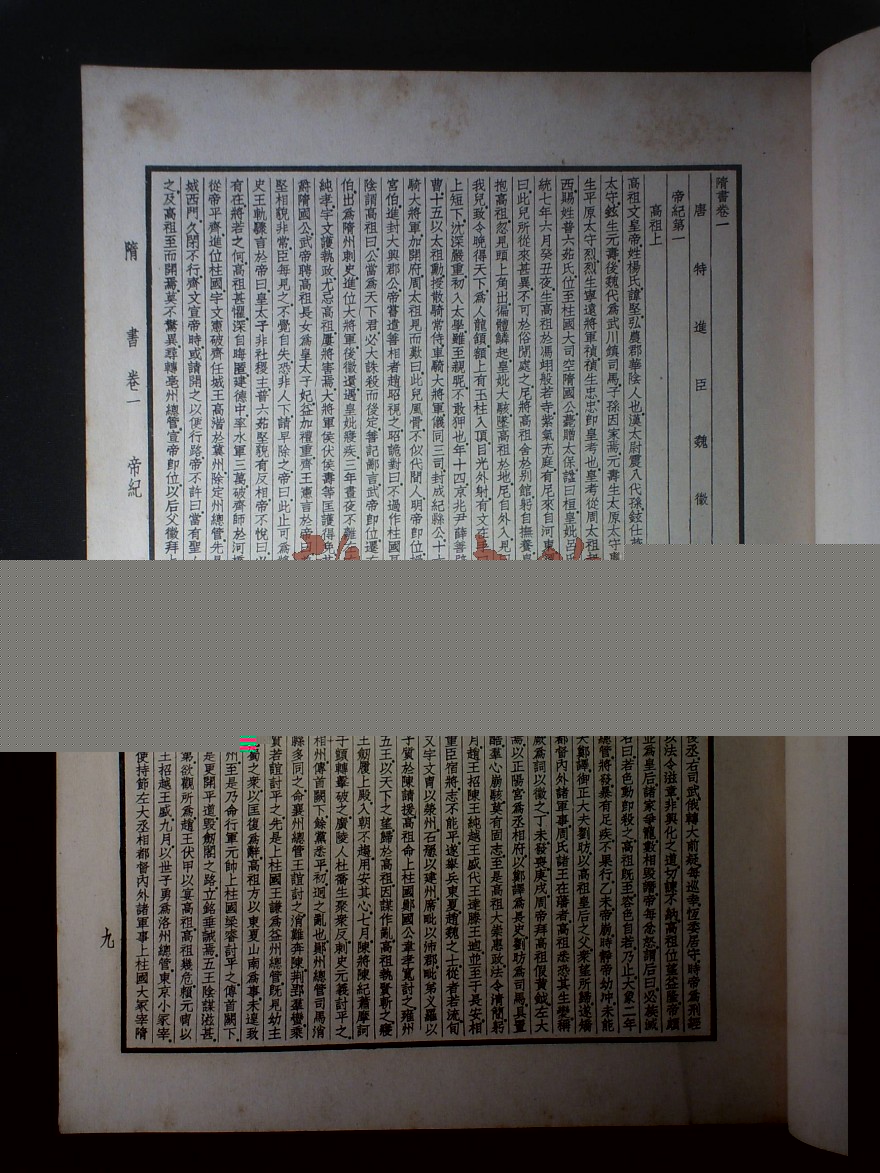 隋書卷一
唐特進臣魏徵
帝紀第一
高祖上
高祖文皇帝姓楊氏諱堅弘農郡華陰人也漢太尉震八代孫鉉仕燕
太守鉉生元壽後魏代為武川鎮司馬子孫因家焉元壽生太原太守惠
生平原太守烈烈生寧遠將軍禎禎生忠忠即皇考也皇考從周太祖起
西賜姓普六茹氏位至柱國大司空隋國公薨贈太保諡曰桓皇妣呂氏
統七年六月癸丑夜生高祖於馮翊般若寺紫氣充庭有尼來自河東
曰此兒所從來甚異不可於俗間處之尼將高祖舍於別館躬自撫養皇
抱高祖忽見頭上角出徧體鱗起皇妣大駭墜高祖於地尼自外入見曰
我兒致令晚得天下為人龍頷額上有玉柱入頂目光外射有文在手
上短下沈深嚴重初入太學雖至親昵不敢狎也年十四京兆尹薛善辟
曹十五以太祖勳授散騎常侍車騎大將軍儀同三司封成紀縣公十六
騎大將軍加開府周太祖見而歎曰此兒風骨不似代間人明帝即位授
宮伯進封大興郡公帝嘗遣善相者趙昭視之昭詭對曰不過作柱國耳
陰謂高祖曰公當為天下君必大誅殺而後定善記鄙言武帝即位遷左
伯出為隋州刺史進位大將軍後徵還遇皇妣寢疾三年晝夜不離左
純孝宇文護執政尤忌高祖屢將害焉大將軍侯伏侯壽等匡護得免其
爵隋國公武帝聘高祖長女為皇太子妃益加禮重齊王憲言於帝曰
堅相貌非常臣每見之不覺自失恐非人下請早除之帝曰此止可為將
史王軌驟言於帝曰皇太子非社稷主普六茹堅貌有反相帝不悅曰必
有在將若之何高祖甚懼深自晦匿建德中率水軍三萬破齊師於河橋
從帝平齊進位柱國宇文憲破齊任城王高湝於冀州除定州總管先是
城西門久閉不行齊文宣帝時或請開之以便行路帝不許曰當有聖人
之及高祖至而開焉莫不驚異尋轉亳州總管宣帝即位以后父徵拜上
隋書卷一 帝紀
後丞右司武俄轉大前疑每巡幸恆委居守時帝為刑經
以法令滋章非興化之道切諫不納高祖位望益隆帝頗
並為皇后諸家爭寵數相毀譖帝每忿怒謂后曰必族滅
右曰若色動即殺之高祖既至容色自若乃止大象二年
總管將發暴有足疾不果行乙未帝崩時靜帝幼沖未能
大鄭譯御正大夫劉昉以高祖皇后之父眾望所歸遂矯
都督內外諸軍事周氏諸王在藩者高祖悉恐其生變稱
厥為詞以徵之丁未發喪庚戌周帝拜高祖假黃鉞左大
焉以正陽宮為丞相府以鄭譯為長史劉昉為司馬具置
酷羣心崩駭莫有固志至是高祖大崇惠政法令清簡躬
月趙王招陳王純越王盛代王達滕王逌並至于長安相
重臣宿將志不能平遂舉兵東夏趙魏之士從者若流旬
又宇文胄以滎州石愻以建州席毗以沛郡毗弟叉羅以
子質於陳請援高祖命上柱國鄖國公韋孝寬討之雍州
五王以天下之望歸於高祖因謀作亂高祖執賢斬之寢
上劍履上殿入朝不趨用安其心七月陳將陳紀蕭摩訶
子顗轉擊破之廣陵人杜喬生聚眾反刺史元義討平之
相州傳首闕下餘黨悉平初迥之亂也鄖州總管司馬消
縣多同之命襄州總管王誼討之消難奔陳荊郢羣蠻乘
賀若誼討平之先是上柱國王謙為益州總管既見幼主
巴蜀之眾以匡復為辭高祖方以東夏山南為事未遑致
州至是乃命行軍元帥上柱國梁睿討平之傳首闕下
是更開平道毀劍閣之路立銘垂誡焉五王陰謀滋甚
第欲觀所為趙王伏甲以宴高祖高祖幾危賴元胄以
王招越王盛九月以世子勇為洛州總管東京小冢宰
使持節左大丞相都督內外諸軍事上柱國大冢宰隋
九